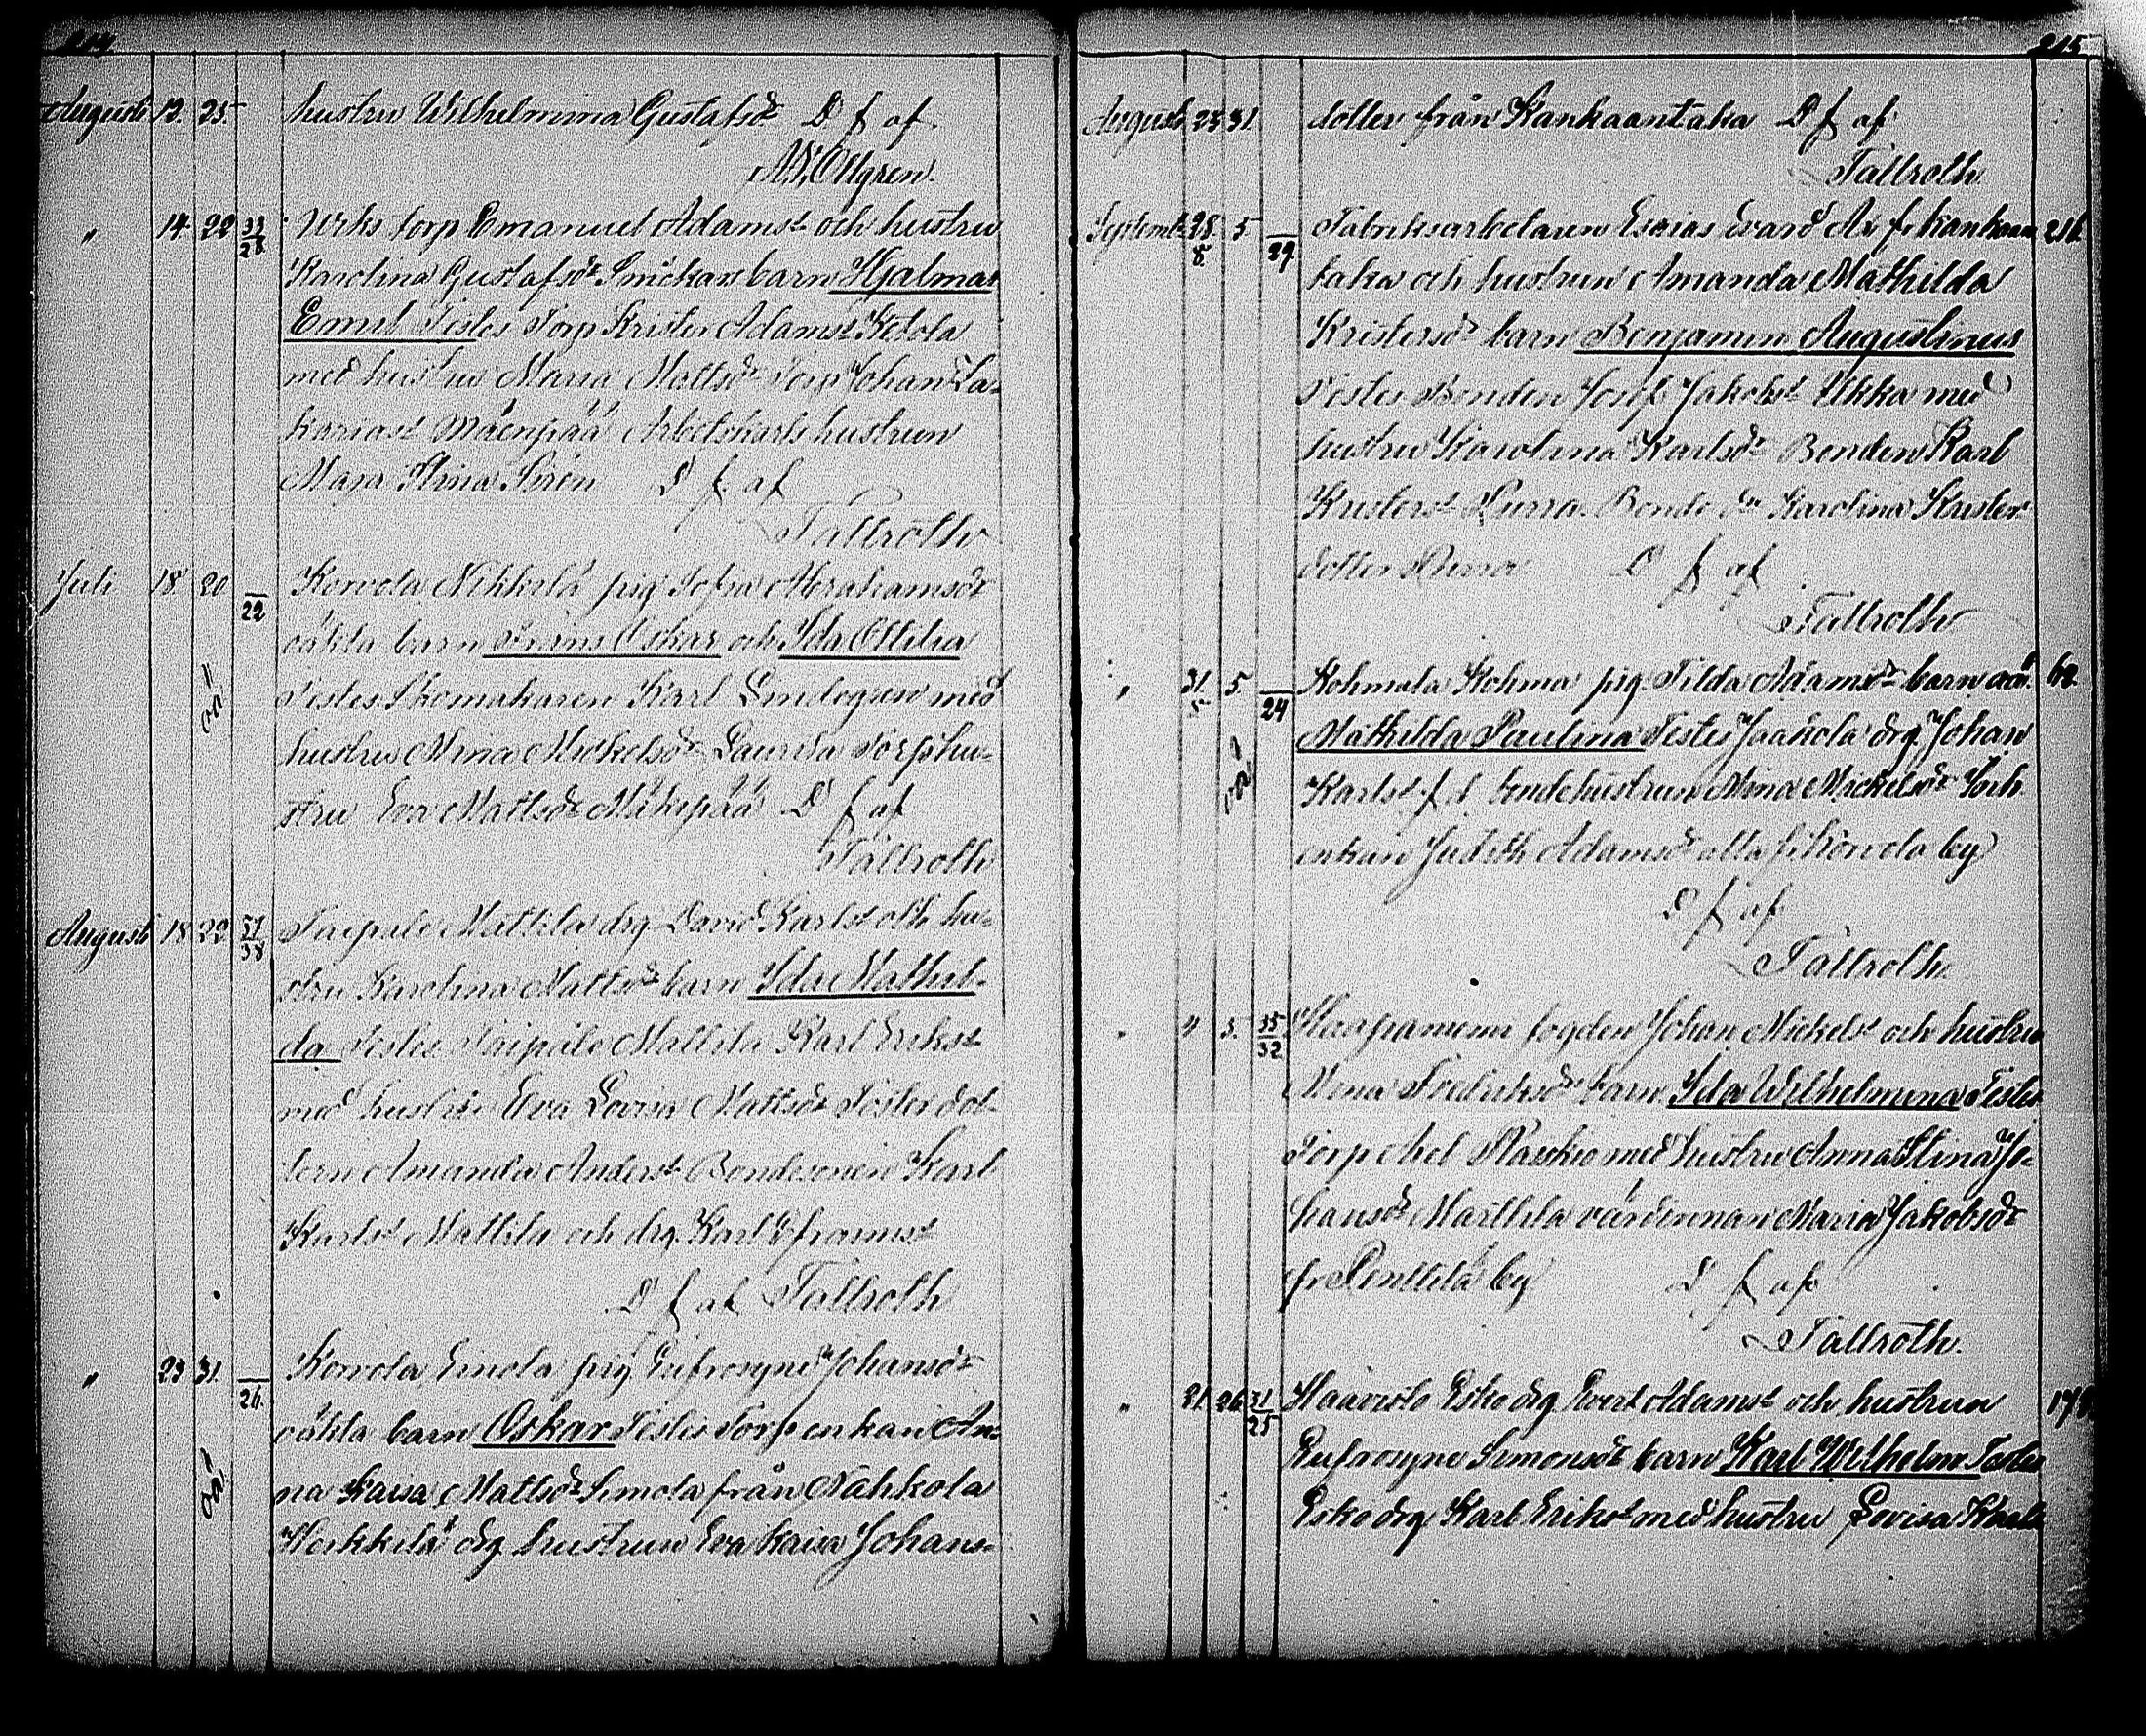 214
Augusti 12. 25. hustru Wilhelmina Gustafsdr D f af.
Ollgren.
" 14. 22 33/28 torp Emanuel Adamst och hustru
Karolina Gustafsdr barn Hjalmar
Emil Testes Torp Krister Adamst Ketola
med hustru Maria Mattsdr Torp Johan Sa-
kariast Mäenpää Arbetskarls hustrun
Maja Stina Siren D f. af
Tallroth
Juli 18 20 /22 Korvola Nikkilä pig Sofia Abrahamsdr
oäkta barn Frans Oskar och Ida Ottilia
oä Testes Skomakaren Karl Lindegren med
hustru Mina Mickelsdr Laurila Torphu-
stru Eva Mattsdr Mäkipää D f af
Tallroth
Augusti 18 22 37/38 Taipale Mattila drg David Karlst och hu-
stru Karolina Mattsdr barn Ida Mathil-
da Testes Taipale Mattila Karl Erikst
med hustru Eva Lovisa Mattsdr dot-
tern Amanda Anderst Bondesonen Karl
Karlst Mattila och drg. Karl Eframst
D f af Tallroth
" 23 31. /26. Korvola Einola pig Eufrosyne Johansdr
oäkta barn Oskar Testes Torp enkan An-
oä na Kaisa Mattsdr Simola från Nahkola
Heikkilä drg hustrun Eva Kaisa Johans-
215
Augusti 23 31. dotter från Kankaantaka D f af
Tallroth
Septemb 28/8 5 /29. Fabriksarbetaren Esaias f. Kankaan 216.
taka och hustrun Amanda Mathilda
Kristersdr barn Benjamin Augustinus
Testes Bonden Josef Jakobst Ukka med
hustru Karolina Karlsdr Bonden Karl
Kristerst Purra Bonde dr Karolina Krister
dotter D f af
Tallroth
" 31/5 5 /24 Kohmala Kohma pig. Tilda Adamsdr barn oä. 62.
Mathilda Paulina Testes Jaakola drg. Johan
oä Karlst f d bondehustrun Mina Mickelsdr
enkan Judith Adamsdr alla f. Korvola by
D f af
Tallroth
" 4 5. 35/32 Haapaniemi fogden Johan Mickelst och hustru
Mina Fredriksdr barn Ida Wilhelmina Testes
Torp Abel med hustru Anna Stina Jo-
hansdr Marttila värdinnan Maria Jakobsdr
fr Penttilä by D f af
Tallroth.
" 21. 26. 31/25 Haavisto Esko drg Evert Adamst och hustrun
Eufrosyne Simonsdr barn Karl Wilhelm Testes
Esko drg Karl Erikst med hustru Lovisa